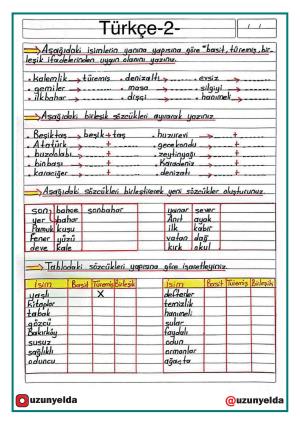 Türkçe-2-
Aşağıdaki isimlerin yanına yapısına göre "basit, türemiş, bir-
leşik ifadelerinden uygun olanını yazınız.
• kalemlik → türemiş • denizaltı → ........ • evsiz → ........
• gemiler → ........ • masa → ........ • silgiyi → ........
• ilkbahar → ........ • dişçi → ........ • hanımeli → ........
Aşağıdaki birleşik sözcükleri ayırarak yazınız.
• Beşiktaş → beşik + taş • huzurevi → ..... + .....
• Atatürk → ..... + ..... • gecekondu → ..... + .....
• buzdolabı → ..... + ..... • zeytinyağı → ..... + .....
• binbaşı → ..... + ..... • Karadeniz → ..... + .....
• karaciğer → ..... + ..... • denizatı → ..... + .....
Aşağıdaki sözcükleri birleştirerek yeni sözcükler oluşturunuz.
son bahçe sonbahar yanar sever
yer bahar Anıt ayak
Pamuk kuşu ilk kabir
Fener yüzü vatan dağ
deve kale kırk okul
Tablodaki sözcükleri yapısına göre işaretleyiniz.
İsim Basit Türemiş Birleşik İsim Basit Türemiş Birleşik
yaşlı X defterler
kitaplar temizlik
tabak hanımeli
gözcü sular
Bakırköy faydalı
susuz odun
sağlıklı ormanlar
oduncu ağaçta
uzunyelda @uzunyelda